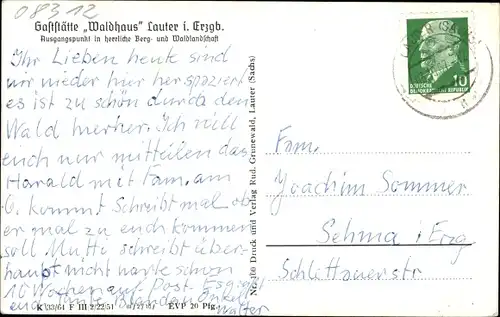 08312
Gaststätte „Waldhaus“ Lauter i. Erzgb.
Ausgangspunkt in herrliche Berg- und Waldlandschaft
Ihr Lieben heute sind
wir wieder hier her spaziert
es ist zu schön durch den
Wald hierher. Ich will
euch nur mitteilen das
Harald mit Fam. am
6. kommt Schreibt mal ob
er mal zu euch kommen
soll Mutti schreibt über-
haupt nicht warte schon
10 Wochen auf Post. Es grüßt
euch Tante Onkel
Walter
K /33/61 F III 2/22/51 EVP 20 Pfg.
Druck und Verlag Rud. Grunewald, Lauter (Sachs)
LAUTER (SACHS)
10
DEUTSCHE
DEMOKRATISCHE REPUBLIK
Fam.
Joachim Sommer
Sehma i Erzg
Schlettauerstr